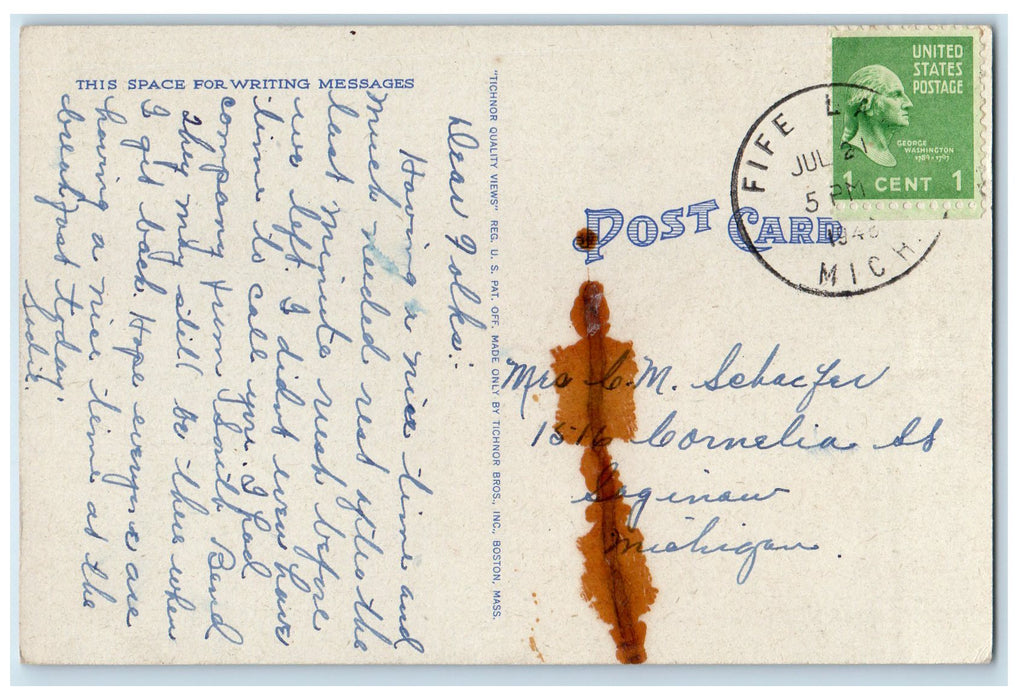 THIS SPACE FOR WRITING MESSAGES
Dear Folks:
Having a nice time and
much needed rest after the
last minute rush before
we left. I didnt even have
time to call you. I had
company from South Bend
They may still be there when
I get back. Hope everyone are
having a nice time at the
breakfast today.
"TICHNOR QUALITY VIEWS" REG. U. S. PAT. OFF. MADE ONLY BY TICHNOR BROS., INC., BOSTON, MASS.
POST CARD
FIFE LA
JUL 21
5 PM
194
MICH.
UNITED
STATES
POSTAGE
GEORGE
WASHINGTON
1789-1797
1 CENT 1
Mrs C. M. Schaefer
1516 Cornelia St
Saginaw
Michigan.